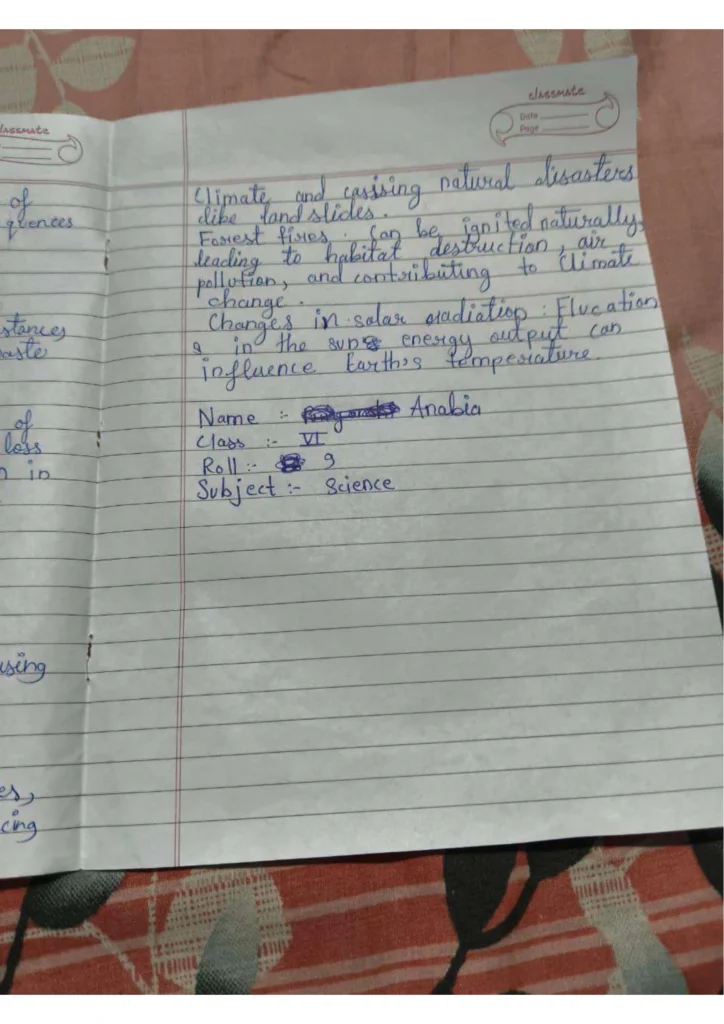 classmate
Date
Page
of
quences
stances
aste
of
loss
in
using
es,
cing
Climate and casising natural disasters
like land slides.
Forest fires. Can be ignited naturally
leading to habitat destruction, air
pollution, and contributing to Climate
change.
Changes in solar radiation : Flucation
s in the sun energy output can
influence Earth's temperature.
Name :- Anabia
Class :- VI
Roll :- 9
Subject :- Science